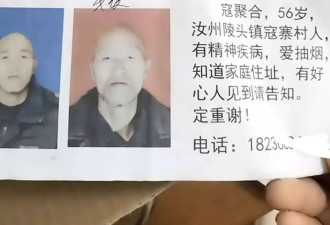 寇聚合，56岁，
汝州陵头镇寇寨村人，
有精神疾病，爱抽烟，
知道家庭住址，有好
心人见到请告知。
定重谢！
电话：18236